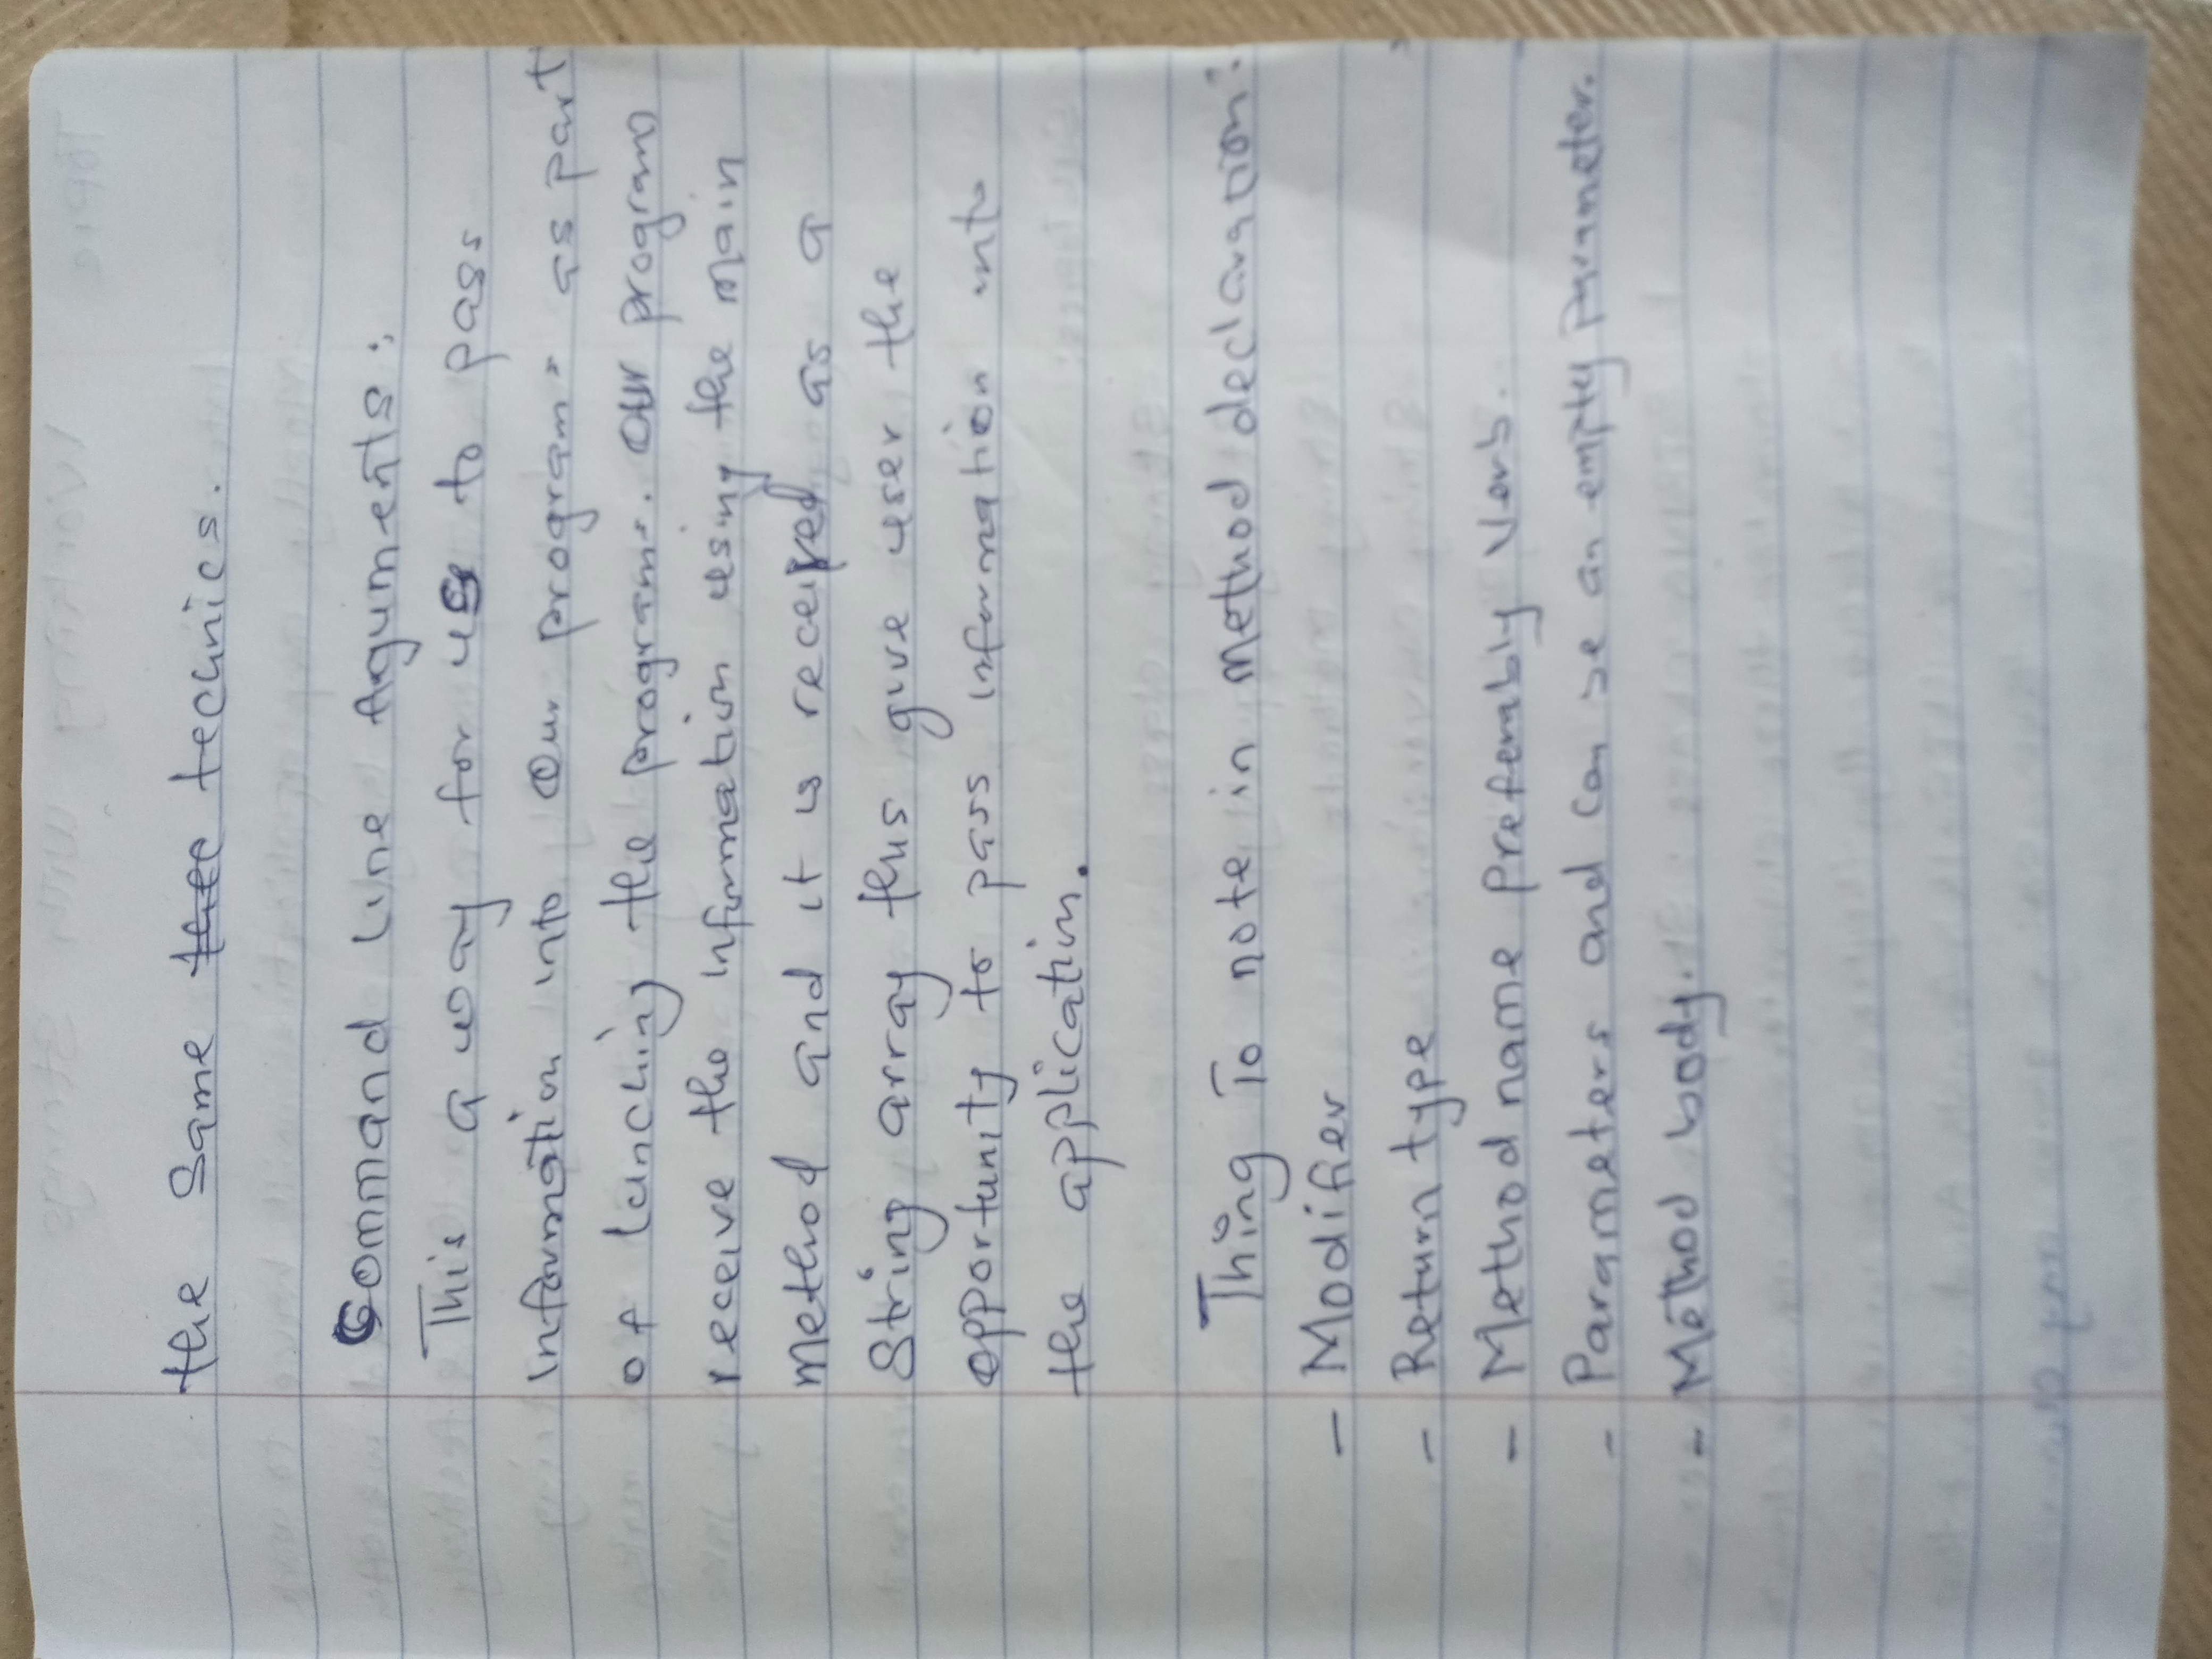 the Same the technics.
Command Line Aguments:
This a way for us to pass
information into our program as part
of lanching the program. our program
receive the information using the main
method and it is received as a
String array this give user the
opportunity to pass information into
the application.
Thing To note in method declaration:
- Modifier
- Return type
- Method name preferably verb.
- Parameters and can be an empty parameter.
- Method body.